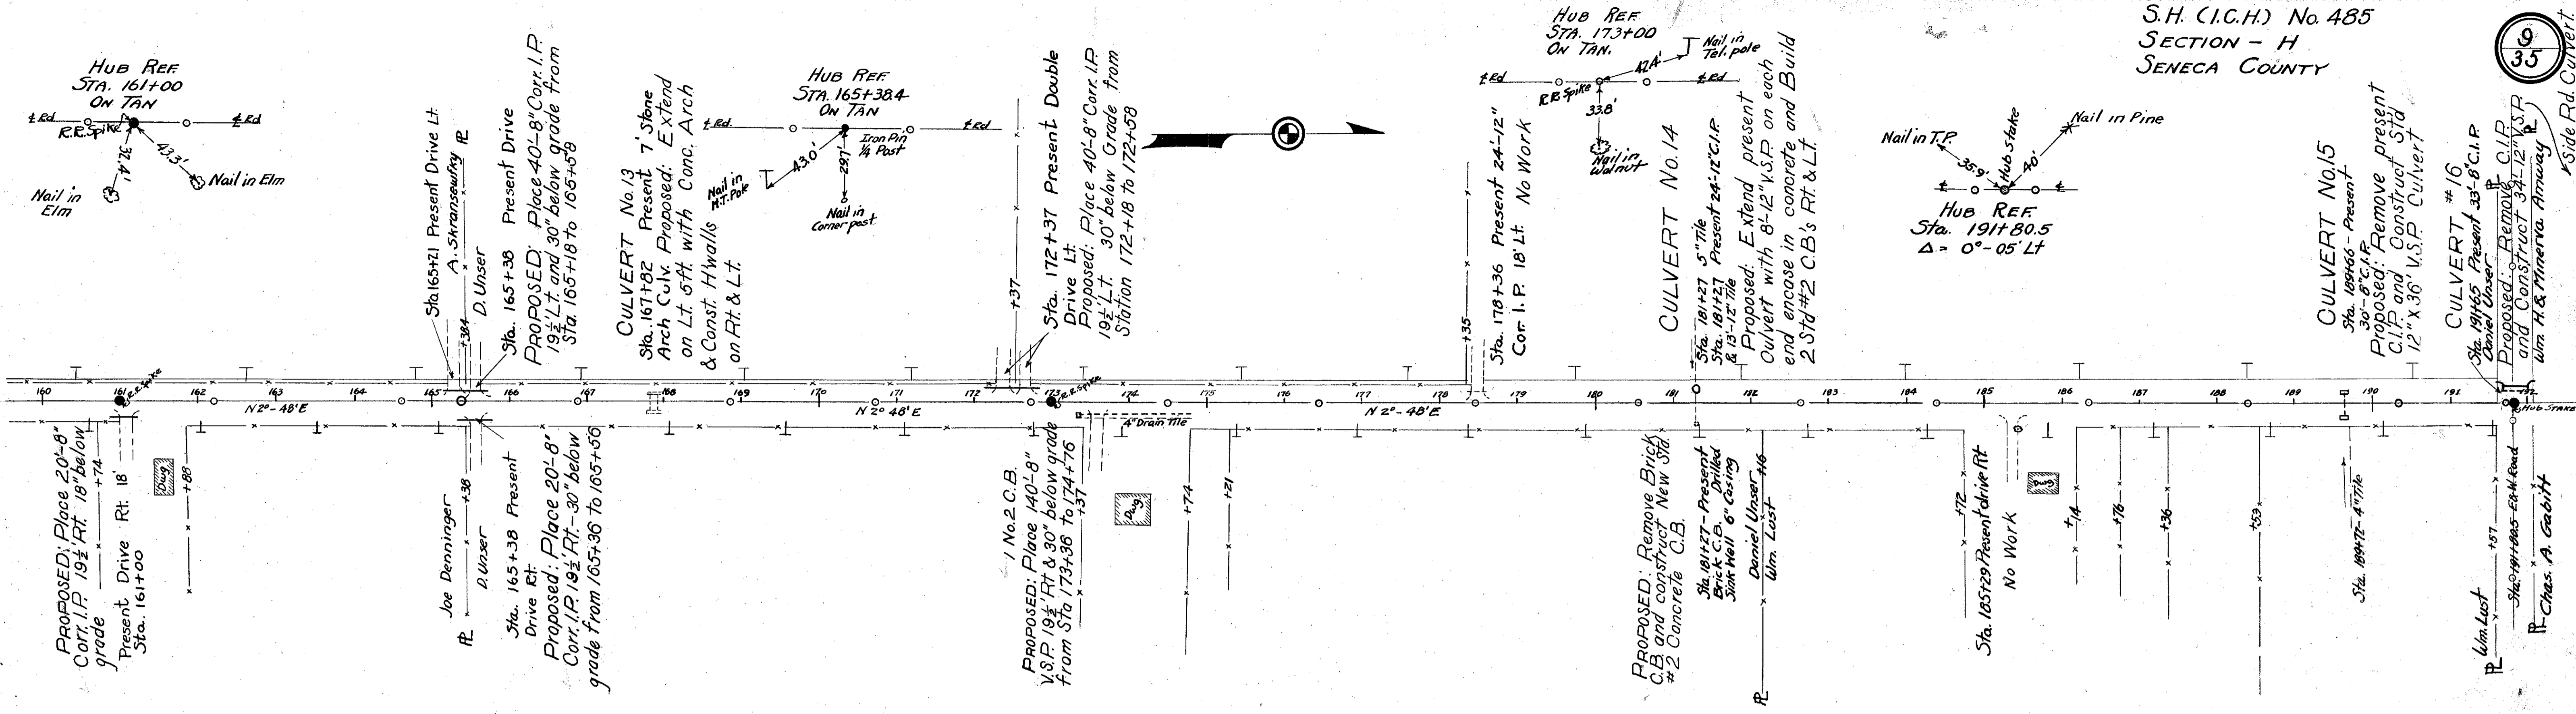 S.H. (I.C.H.) No. 485
SECTION - H
SENECA COUNTY
9
35
Side Rd. Culvert
HUB REF.
STA. 161+00
ON TAN
℄ Rd
℄ Rd
R.R. Spike
32.4'
43.3'
Nail in
Elm
Nail in Elm
Sta 165+21 Present Drive Lt.
A. Skransewfky
+38.4
D. Unser
Sta. 165+38 Present Drive
PROPOSED: Place 40'-8" Corr. I.P.
19½' Lt. and 30" below grade from
Sta. 165+18 to 165+58
CULVERT No. 13
Sta. 167+82 Present 7' Stone
Arch Culv. Proposed: Extend
on Lt. 5ft. with Conc. Arch
& Const. H'walls
on Rt. & Lt.
HUB REF.
STA. 165+38.4
ON TAN
℄ Rd.
℄ Rd
Iron Pin
¼ Post
43.0'
29.7'
Nail in
M.T. Pole
Nail in
Corner post
+37
Sta. 172+37 Present Double
Drive Lt.
Proposed: Place 40'-8" Corr. I.P.
19½' Lt. 30" below Grade from
Station 172+18 to 172+58
HUB REF.
STA. 173+00
ON TAN.
℄ Rd
℄ Rd
R.R. Spike
42.4'
Nail in
Tel. pole
33.8'
Nail in
Walnut
+35
Sta. 178+36 Present 24'-12"
Cor. I.P. 18' Lt. No Work
CULVERT No. 14
Sta. 181+27 5" Tile
Sta. 181+27 Present 24'-12" C.I.P.
& 13'-12" Tile
Proposed: Extend present
Culvert with 8'-12" V.S.P. on each
end encase in concrete and Build
2 Std #2 C.B's Rt. & Lt.
Nail in T.P.
Hub Stake
Nail in Pine
35.9'
40'
℄
℄
HUB REF.
Sta. 191+80.5
Δ = 0°-05' Lt
CULVERT No. 15
Sta. 189+65 - Present
30'-8" C.I.P.
Proposed: Remove present
C.I.P. and Construct Std
12" x 36' V.S.P. Culvert
CULVERT #16
Sta. 191+65 Present 33'-8" C.I.P.
Daniel Unser
Proposed: Remove C.I.P.
and Construct 34'-12" V.S.P.
Wm. H. & Minerva Amuway
160 161 162 163 164 165 166 167 168 169 170 171 172 173 174 175 176 177 178 179 180 181 182 183 184 185 186 187 188 189 190 191 192
R.R. Spike
R.R. Spike
HUB STAKE
N 2°-48' E
N 2° 48' E
N 2°-48' E
4" Drain Tile
PROPOSED: Place 20'-8"
Corr. I.P. 19½' Rt. 18" below
grade
+74
Present Drive Rt. 18'
Sta. 161+00
Dwg.
+88
Joe Denninger
+38
D. Unser
Sta. 165+38 Present
Drive Rt.
Proposed: Place 20'-8"
Corr. I.P. 19½' Rt-30" below
grade from 165+36 to 165+56
1 No. 2 C.B.
PROPOSED: Place 140'-8"
V.S.P. 19½' Rt & 30" below grade
from Sta 173+36 to 174+76
+37
Dwg.
+74
+21
PROPOSED: Remove Brick
C.B. and construct New Std.
#2 Concrete C.B.
Sta. 181+27 - Present
Brick C.B. Drilled
Sink Well 6" Casing
Daniel Unser
+16
Wm. Lust
+72
Sta. 185+29 Present drive Rt
No Work
Dwg
+14
+76
+36
+59
Sta. 189+72 - 4" Tile
Wm. Lust
+57
Sta. 191+80.5 E&W Road
Chas. A. Gabitt